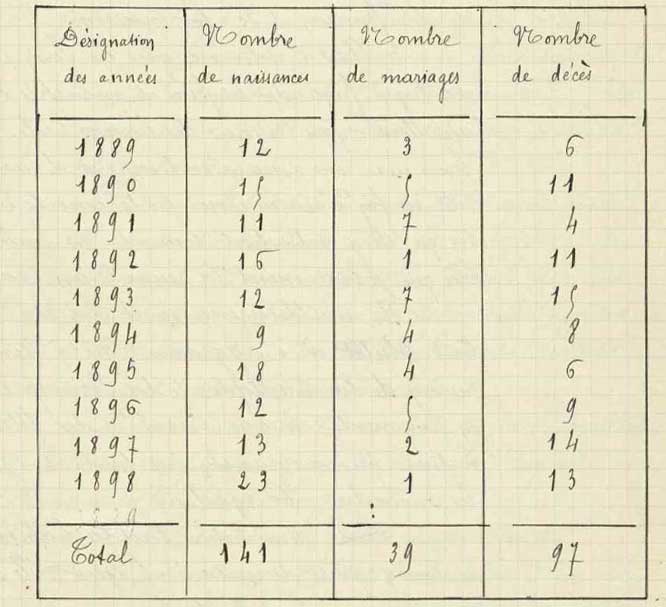 Désignation Nombre Nombre Nombre
des années de naissances de mariages de décès
1889 12 3 6
1890 15 5 11
1891 11 7 4
1892 16 1 11
1893 12 7 15
1894 9 4 8
1895 18 4 6
1896 12 5 9
1897 13 2 14
1898 23 1 13
Total 141 39 97